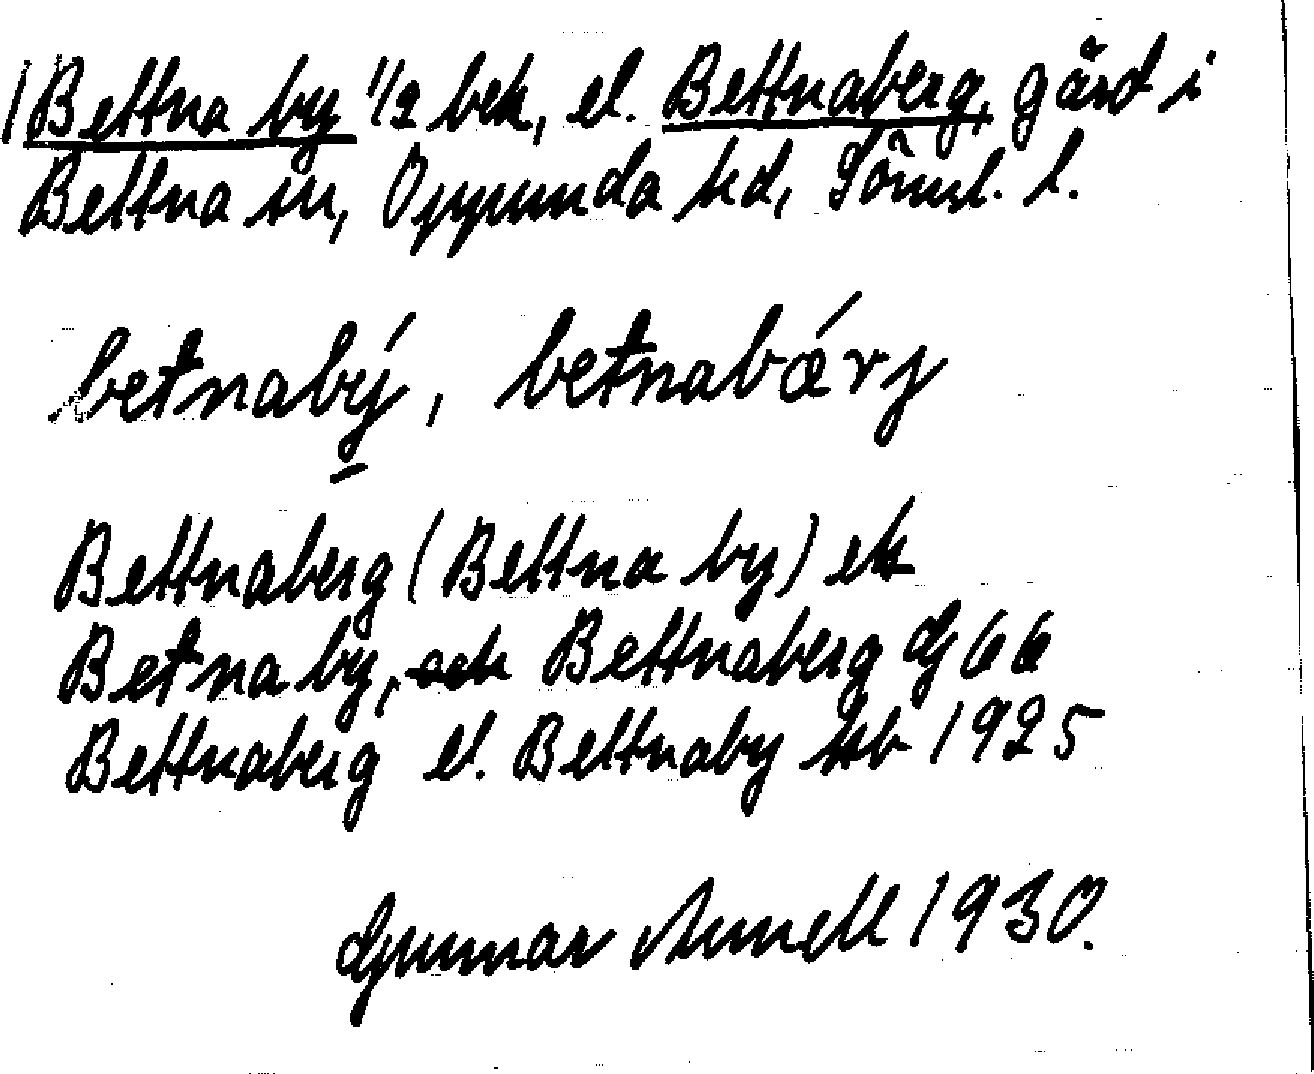 1 Bettna by 1/2 bek, el. Bettnaberg, gård i
Bettna sn, Oppunda hd, Söml. l.
betnabý, betnabǽrj
Bettnaberg (Bettna by) ek
Betna by, och Bettnaberg Gj 66
Bettnaberg el. Bettnaby kb 1925
Gunnar 1930.